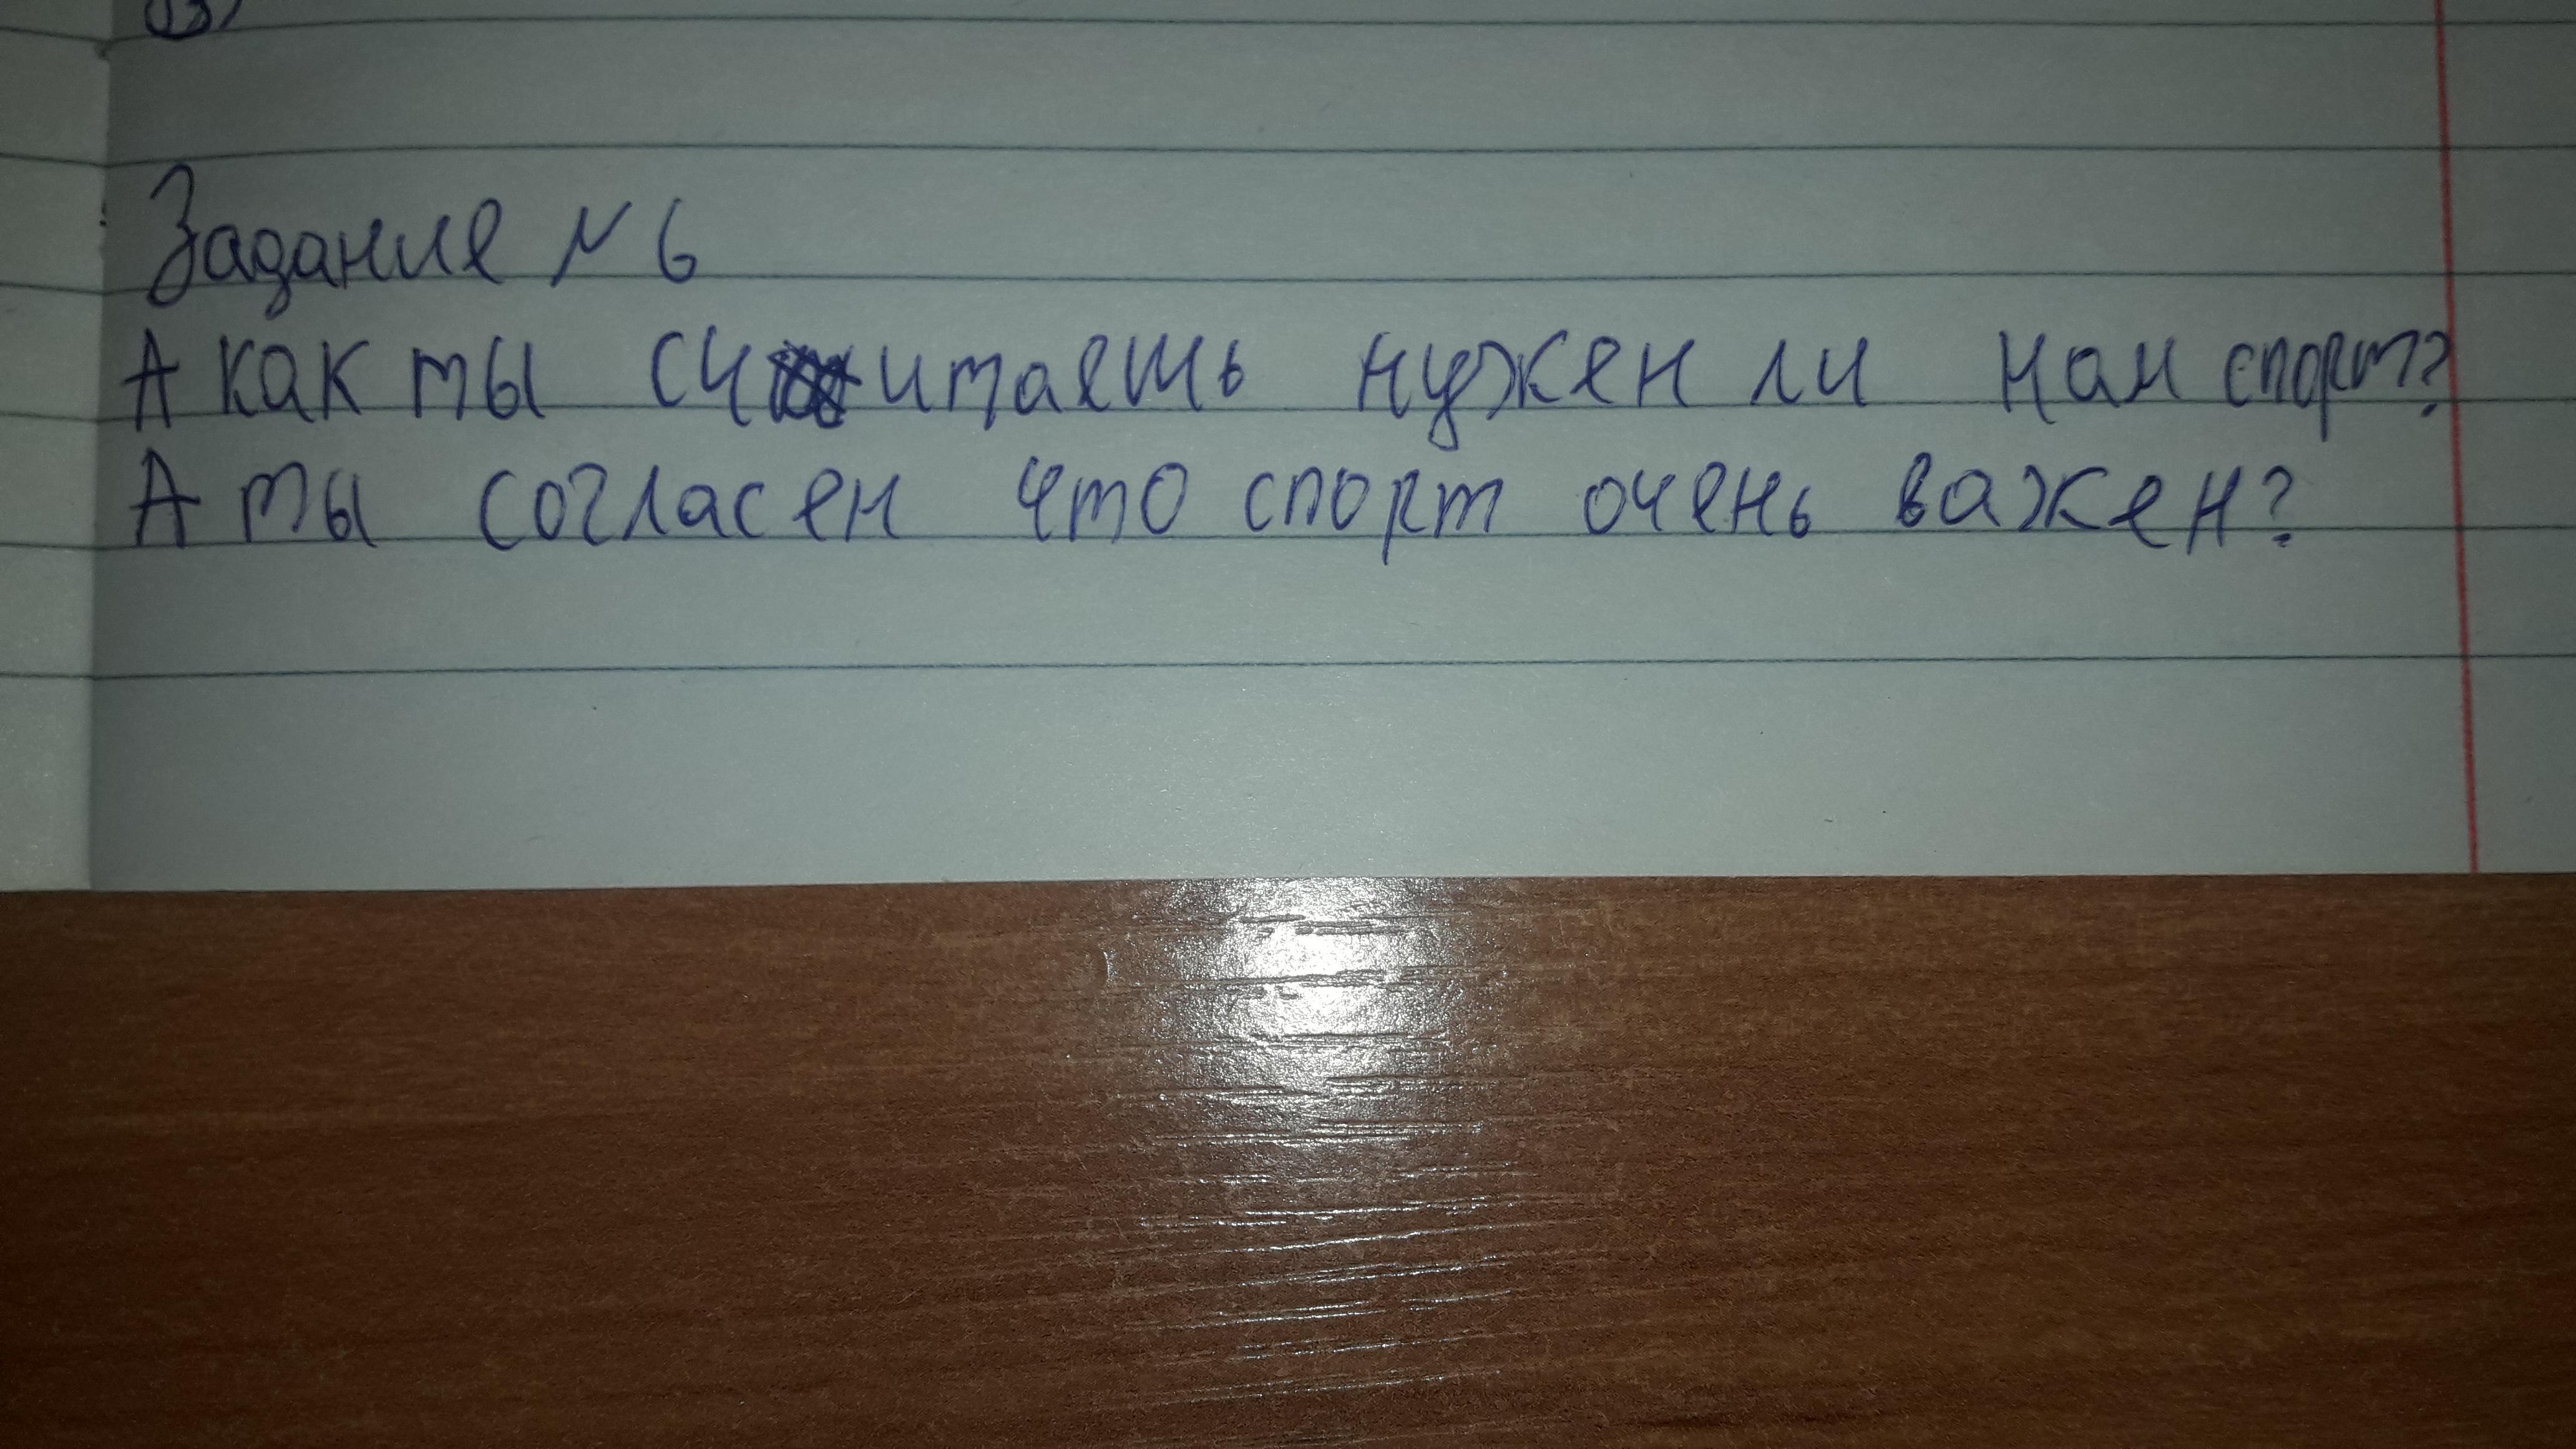 Задание № 6
А как ты считаешь нужен ли нам спорт?
А ты согласен что спорт очень важен?